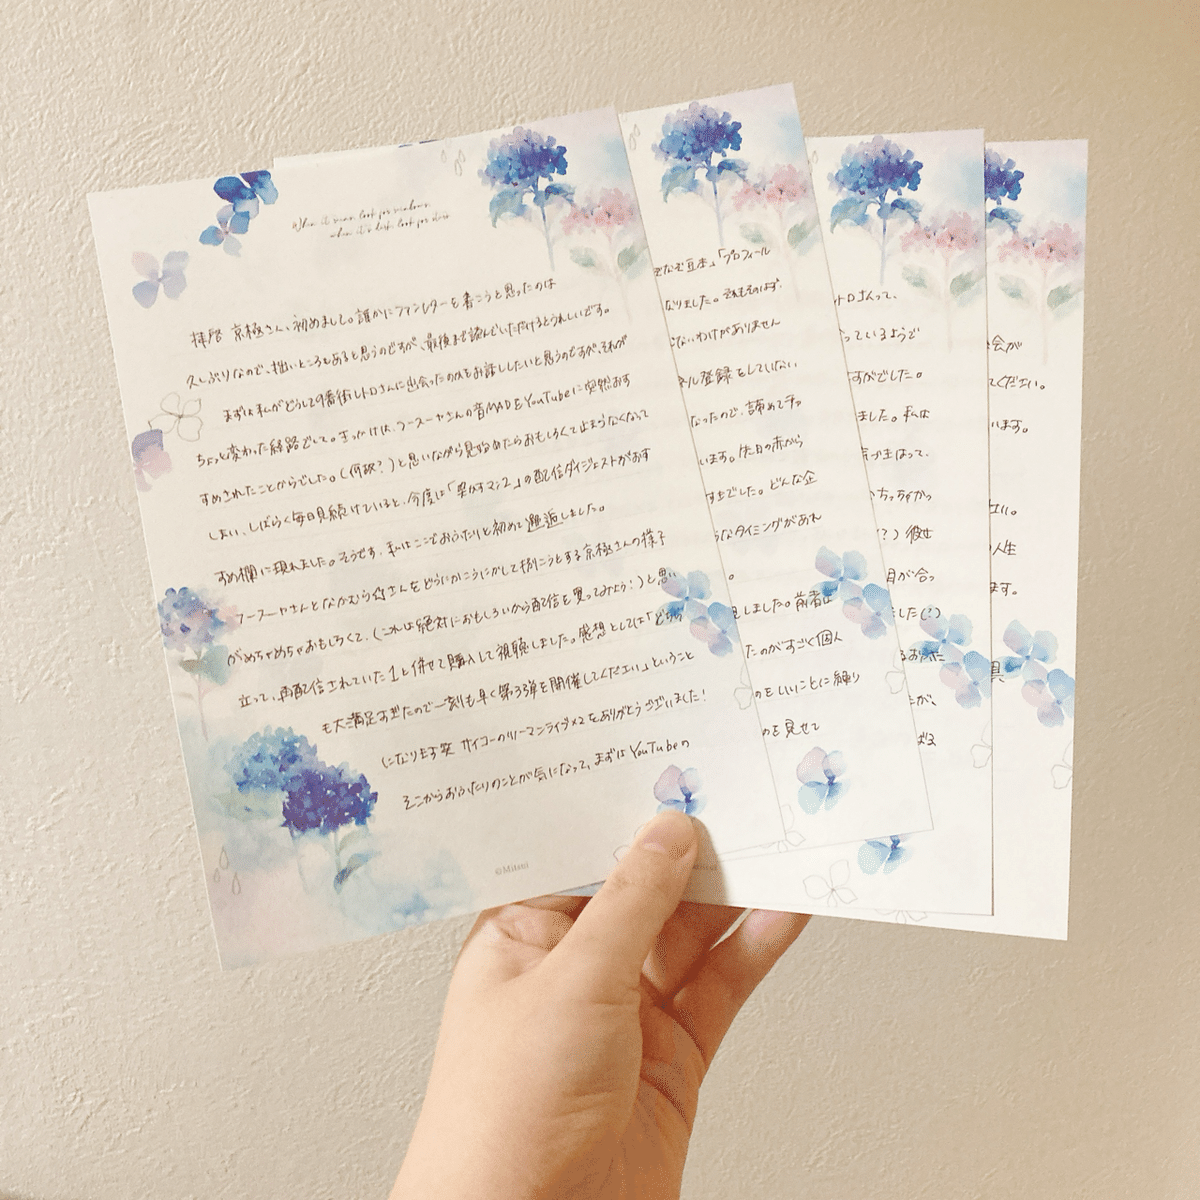 When it rains, look for rainbows,
when it's dark, look for stars
拝啓 京極さん、初めまして。誰かにファンレターを書こうと思ったのは
久しぶりなので、拙いところもあると思うのですが、最後まで読んでいただけるとうれしいです。
まずは私がどうして9番街レトロさんに出会ったのかをお話ししたいと思うのですが、それが
ちょっと変わった経路でして。きっかけは、フースーヤさんの音MADをYouTubeに突然おす
すめされたことからでした。(何故?)と思いながら見始めたらおもしろくて止まらなくなって
しまい、しばらく毎日見続けていると、今度は「翠かすマン2」の配信ダイジェストがおす
すめ欄に現れました。そうです、私はここでおふたりと初めて邂逅しました。
フースーヤさんとなかむら☆さんをどうにかこうにかして捌こうとする京極さんの様子
がめちゃめちゃおもしろくて、(これは絶対におもしろいから配信を買ってみよう!)と思い
立って、再配信されていた1と併せて購入して視聴しました。感想としては「どちら
も大満足すぎたので一刻も早く第3弾を開催してください」ということ
になります笑 サイコーのツーマンライブ×2をありがとうございました!
そこからおふたりのことが気になって、まずはYouTubeの
©Mitsui
「プロフィール
なりました。それもそのはず、
ないわけがありません
ネル登録をしていない
なったので、諦めてチャ
います。先日の赤から
すまでした。どんな企
うなタイミングがあれ
。
見しました。前者は
たのがすごく個人
のをいいことに練り
のを見せて
トロさんって、
っているようで
すがでした。
ました。私は
まはって、
ちっちゃかっ
?)彼女
目が合っ
ました(?)
るおふた
が、
ばる
会が
てください。
います。
さい。
人生
ます。
具